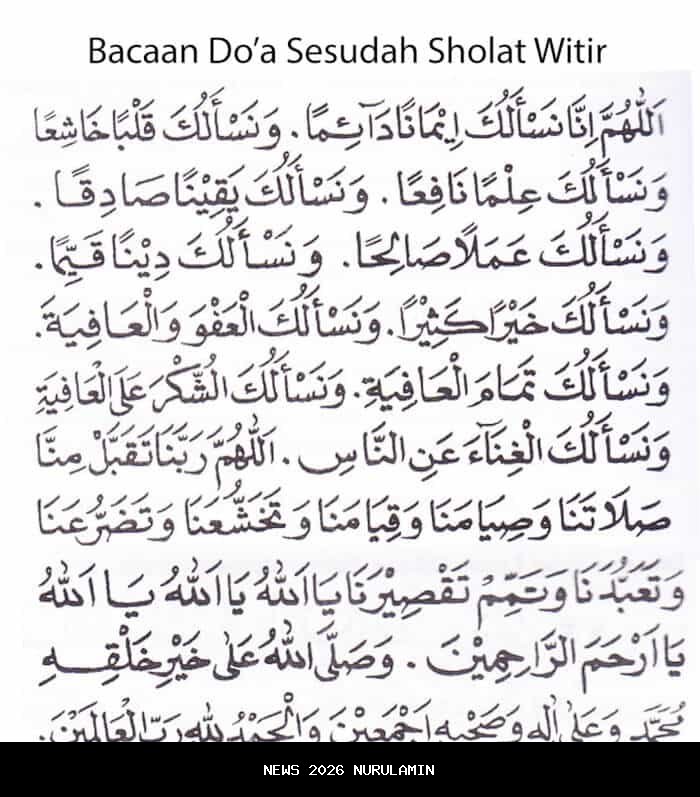 Bacaan Do’a Sesudah Sholat Witir
اَللّٰهُمَّ اِنَّا نَسْأَلُكَ اِيْمَانًا دَآئِمًا. وَنَسْأَلُكَ قَلْبًا خَاشِعًا
وَنَسْأَلُكَ عِلْمًا نَافِعًا. وَنَسْأَلُكَ يَقِيْنًا صَادِقًا.
وَنَسْأَلُكَ عَمَلًا صَالِحًا. وَنَسْأَلُكَ دِيْنًا قَيِّمًا.
وَنَسْأَلُكَ خَيْرًا كَثِيْرًا. وَنَسْأَلُكَ الْعَفْوَ وَالْعَافِيَةَ.
وَنَسْأَلُكَ تَمَامَ الْعَافِيَةِ. وَنَسْأَلُكَ الشُّكْرَ عَلَى الْعَافِيَةِ
وَنَسْأَلُكَ الْغِنَآءَ عَنِ النَّاسِ. اَللّٰهُمَّ رَبَّنَا تَقَبَّلْ مِنَّا
صَلَاتَنَا وَصِيَامَنَا وَقِيَامَنَا وَتَخَشُّعَنَا وَتَضَرُّعَنَا
وَتَعَبُّدَنَا وَتَمِّمْ تَقْصِيْرَنَا يَا اَللّٰهُ يَا اَللّٰهُ يَا اَللّٰهُ
يَا اَرْحَمَ الرَّاحِمِيْنَ. وَصَلَّى اللّٰهُ عَلٰى خَيْرِ خَلْقِهِ
مُحَمَّدٍ وَعَلٰى اٰلِهِ وَصَحْبِهِ اَجْمَعِيْنَ وَالْحَمْدُ لِلّٰهِ رَبِّ الْعَالَمِيْنَ.
NEWS 2026 NURULAMIN